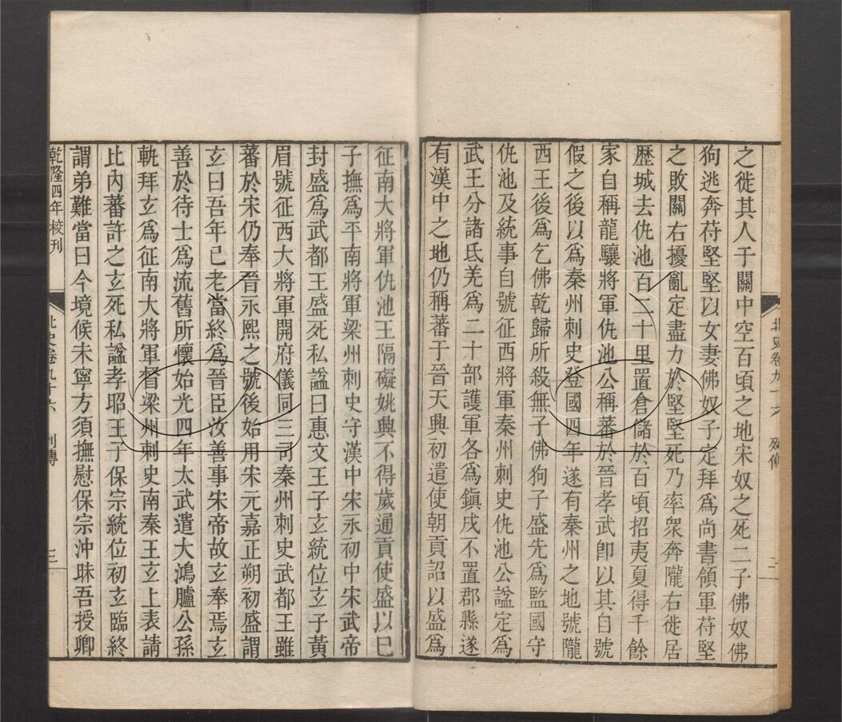 之徙其人于關中空百頃之地宋奴之死二子佛奴佛
狗逃奔苻堅堅以女妻佛奴子定拜爲尚書領軍苻堅
之敗關右擾亂定盡力於堅堅死乃率衆奔隴右徙居
歷城去仇池百二十里置倉儲於百頃招夷夏得千餘
家自稱龍驤將軍仇池公稱蕃於晉孝武卽以其自號
假之後以爲秦州刺史登國四年遂有秦州之地號隴
西王後爲乞佛乾歸所殺無子佛狗子盛先爲監國守
仇池及統事自號征西將軍秦州刺史仇池公諡定爲
武王分諸氐羌爲二十部護軍各爲鎭戍不置郡縣遂
有漢中之地仍稱蕃于晉天興初遣使朝貢詔以盛爲
征南大將軍仇池王隔礙姚興不得歲通貢使盛以巳
子撫爲平南將軍梁州刺史守漢中宋永初中宋武帝
封盛爲武都王盛死私諡曰惠文王子玄統位玄子黃
眉號征西大將軍開府儀同三司秦州刺史武都王雖
蕃於宋仍奉晉永熙之號後始用宋元嘉正朔初盛謂
玄曰吾年已老當終爲晉臣汝善事宋帝故玄奉焉玄
善於待士爲流舊所懷始光四年太武遣大鴻臚公孫
軌拜玄爲征南大將軍督梁州刺史南秦王玄上表請
比內蕃許之玄死私諡孝昭王子保宗統位初玄臨終
謂弟難當曰今境候未寧方須撫慰保宗沖昧吾授卿
乾隆四年校刊
北史卷九十六 列傳 三